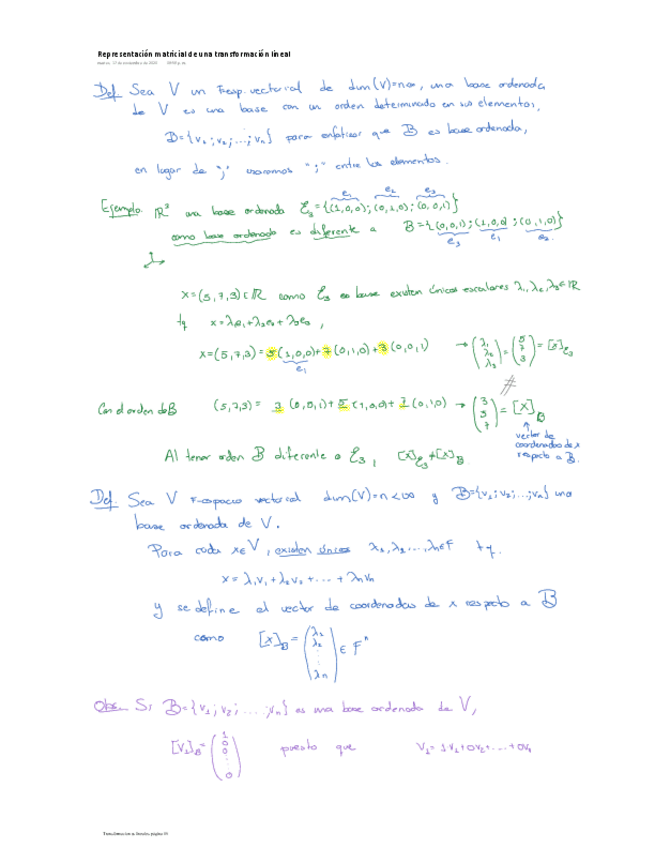 Representación matricial de una transformación lineal
Def. Sea V un F-esp. vectorial de dim(V)=n<∞, una base ordenada
de V es una base con un orden determinado en sus elementos.
B={v₁;v₂;...;vₙ} para enfatizar que B es base ordenada,
en lugar de "," usaremos ";" entre los elementos.
e₁ e₂ e₃
Ejemplo ℝ³ una base ordenada ℰ₃={(1,0,0);(0,1,0);(0,0,1)}
como base ordenada es diferente a B={(0,0,1);(1,0,0);(0,1,0)}
e₃ e₁ e₂.
x=(5,7,3)∈ℝ como ℰ₃ es base existen únicos escalares λ₁,λ₂,λ₃∈ℝ
tq x=λ₁e₁+λ₂e₂+λ₃e₃,
x=(5,7,3)=5(1,0,0)+7(0,1,0)+3(0,0,1) → (λ₁ λ₂ λ₃)=(5 7 3)=[x]ℰ₃
e₁
≠
Con el orden de B (5,7,3)= 3 (0,0,1)+5 (1,0,0)+7 (0,1,0) → (3 5 7)=[x]B
vector de
coordenadas de x
respecto a B.
Al tener orden B diferente a ℰ₃, [x]ℰ₃≠[x]B.
Def. Sea V F-espacio vectorial dim(V)=n<∞ y B={v₁;v₂;...;vₙ} una
base ordenada de V.
Para cada x∈V, existen únicos λ₁,λ₂,...,λₙ∈F tq.
x=λ₁v₁+λ₂v₂+...+λₙvₙ
y se define el vector de coordenadas de x respecto a B
como [x]B=(λ₁ λ₂ ⋮ λₙ)∈Fⁿ
Obs. Si B={v₁;v₂;...;vₙ} es una base ordenada de V,
[v₁]B=(1 0 0 ⋮ 0) puesto que v₁=1v₁+0v₂+...+0vₙ